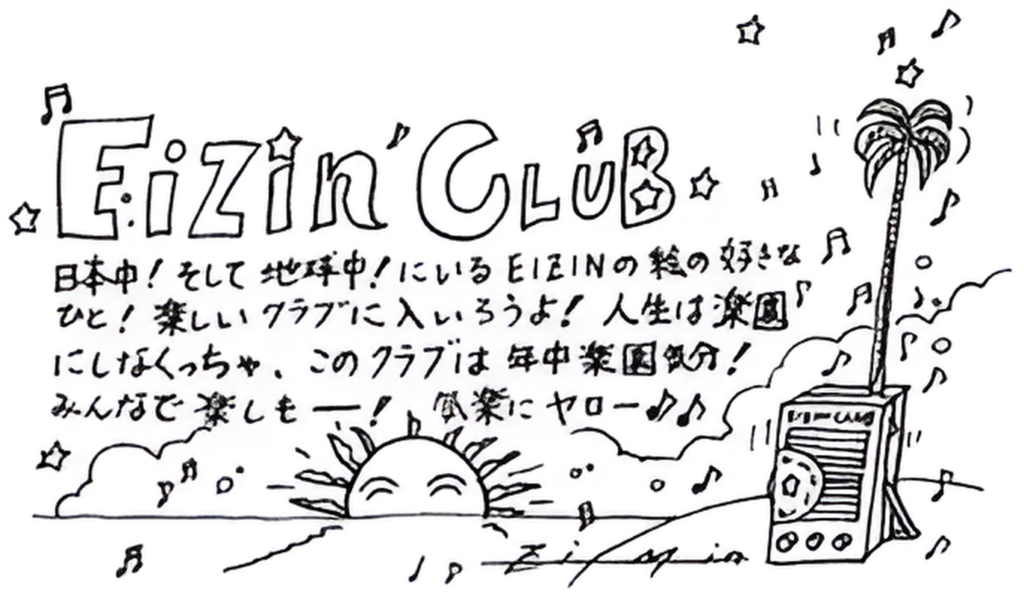 EiZin' CLUB
日本中!そして地球中!にいるEIZINの絵の好きな
ひと!楽しいクラブに入いろうよ!人生は楽園
にしなくっちゃ、このクラブは年中楽園気分!
みんなで楽しもー!気楽にヤロー♪♪